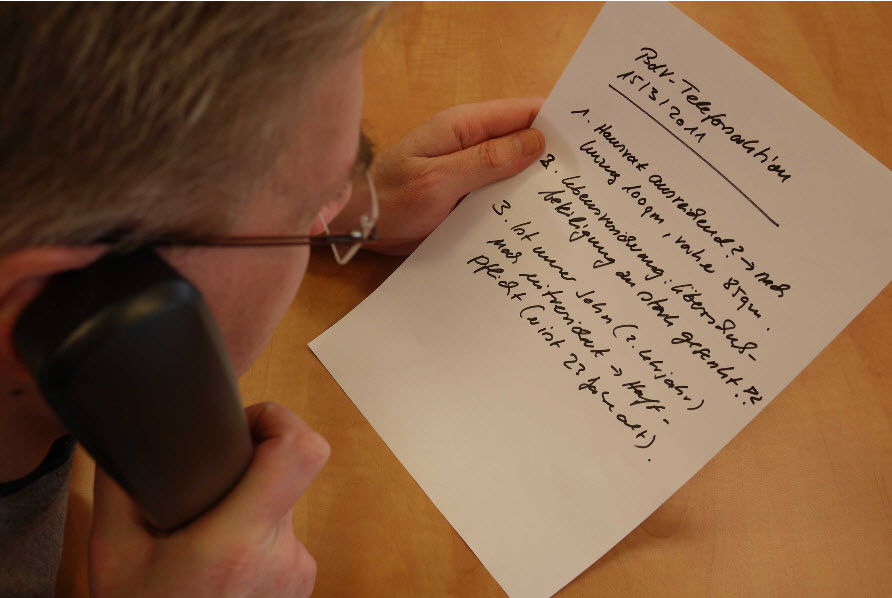 BdV-Telefonaktion
15/3/2011
1. Hausrat ausreichend? → nach
Umzug 100qm, vorher 85qm.
2. Lebensversicherung: Überschuß-
beteiligung so stark gesenkt??
3. Ist unser Sohn (2. Lehrjahr)
noch mitversichert → Haft-
pflicht (er ist 23 Jahre alt).